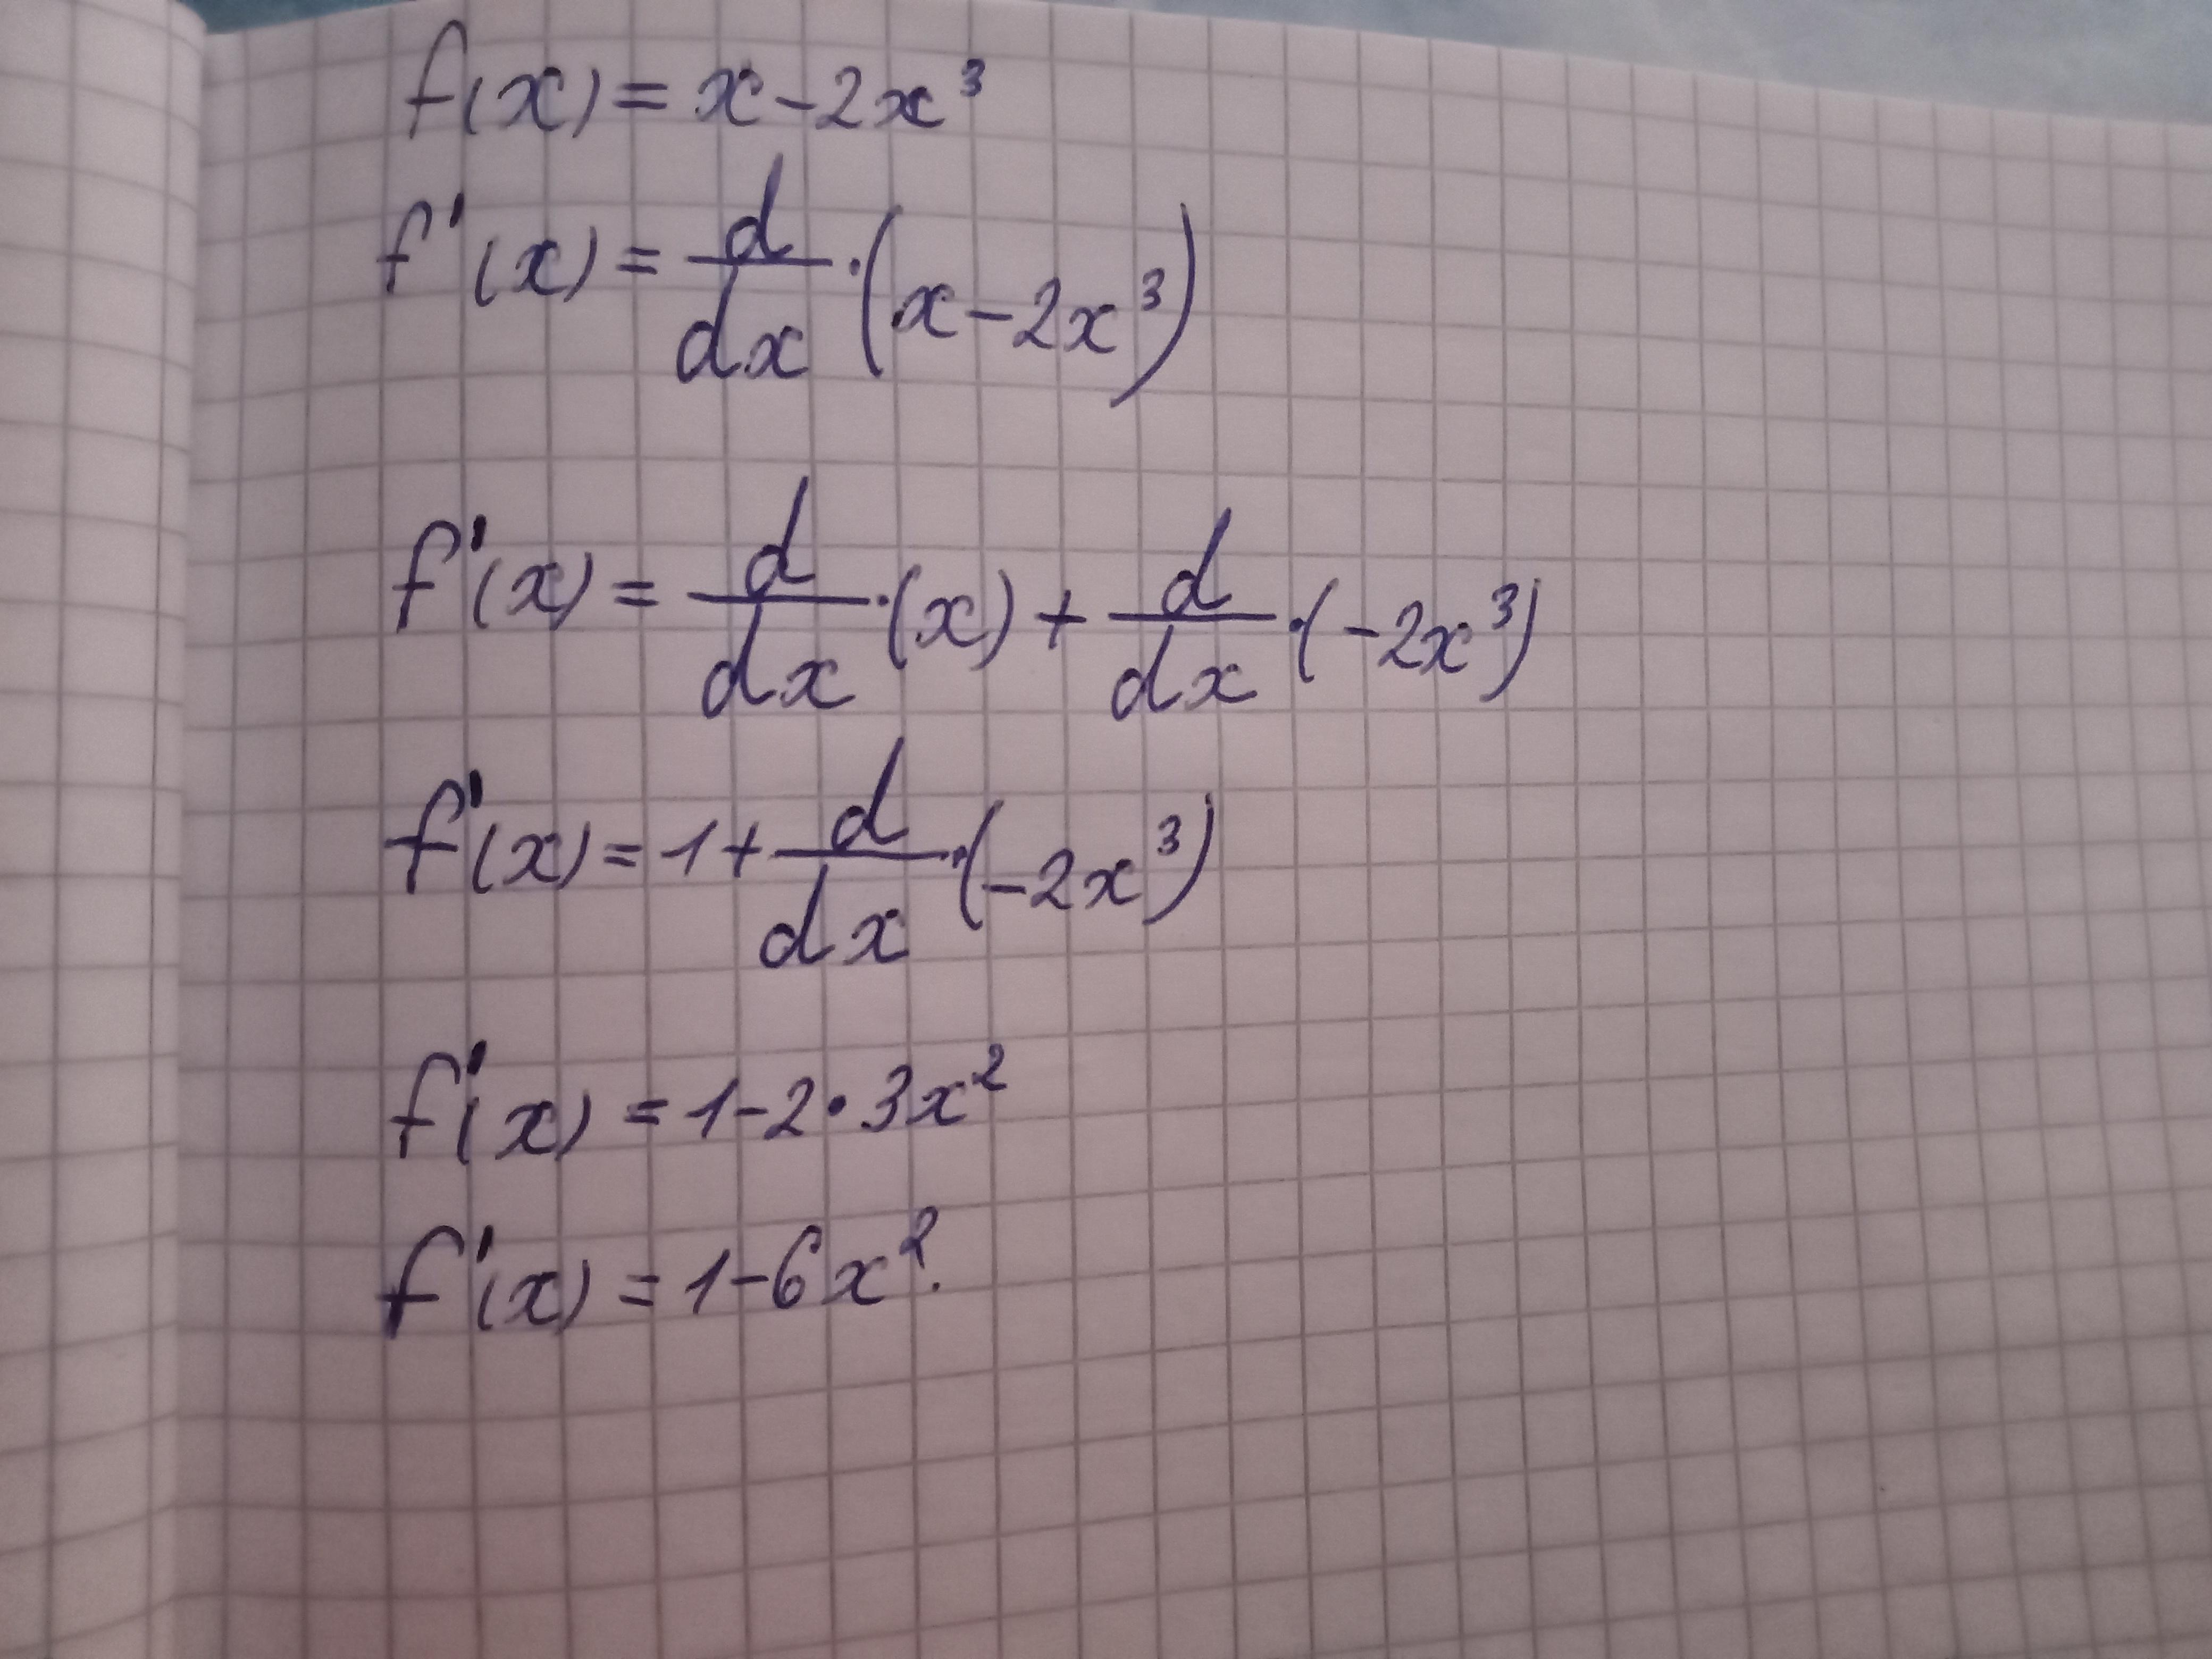 f(x) = x - 2x³
f'(x) = d/dx · (x - 2x³)
f'(x) = d/dx · (x) + d/dx · (-2x³)
f'(x) = 1 + d/dx · (-2x³)
f'(x) = 1 - 2 · 3x²
f'(x) = 1 - 6x².